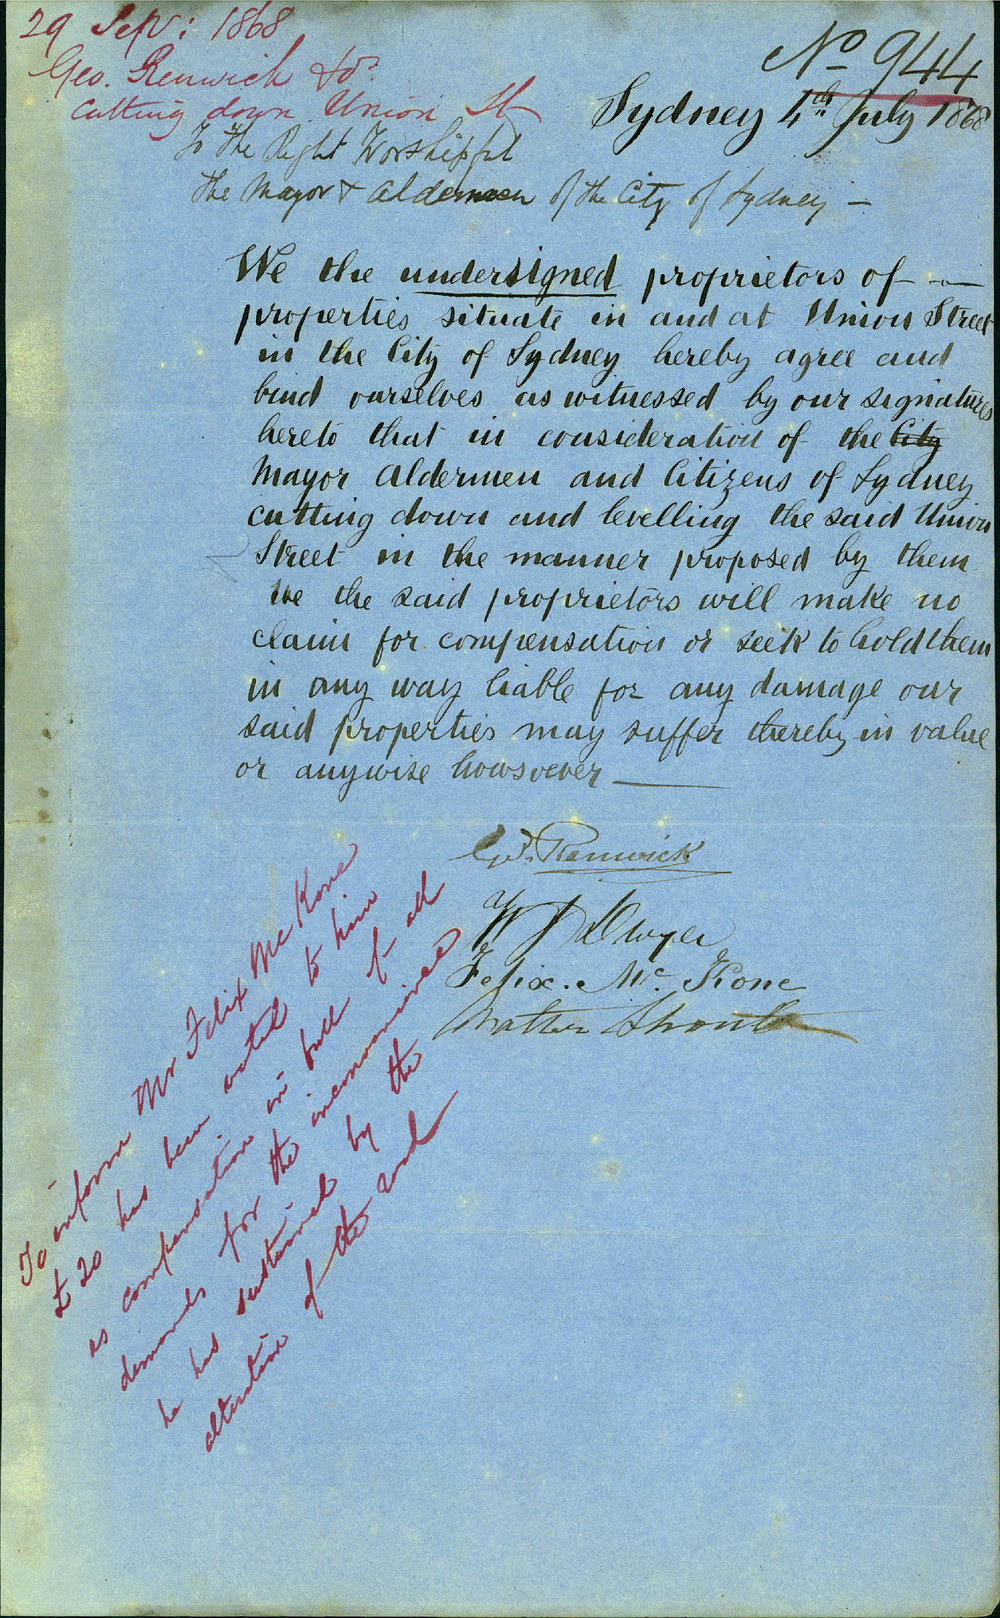 29 Sept: 1868
Geo. Renwick & os.
Cutting down Union St
No 944
Sydney 4th July 1868
To the Right Worshipful
the Mayor & Aldermen of the City of Sydney —
We the undersigned proprietors of
properties situate in and at Union Street
in the City of Sydney hereby agree and
bind ourselves as witnessed by our signatures
hereto that in consideration of the City
Mayor Aldermen and Citizens of Sydney
cutting down and levelling the said Union
Street in the manner proposed by them
We the said proprietors will make no
claim for compensation or seek to hold them
in any way liable for any damage our
said properties may suffer thereby in value
or anywise howsoever
Geo. Renwick
W Dwyer
Felix. Mc Kone
To inform Mr Felix McKone
£20 has been voted to him
as compensation in full of all
demands for the inconvenience
he has sustained by the
alteration of the road